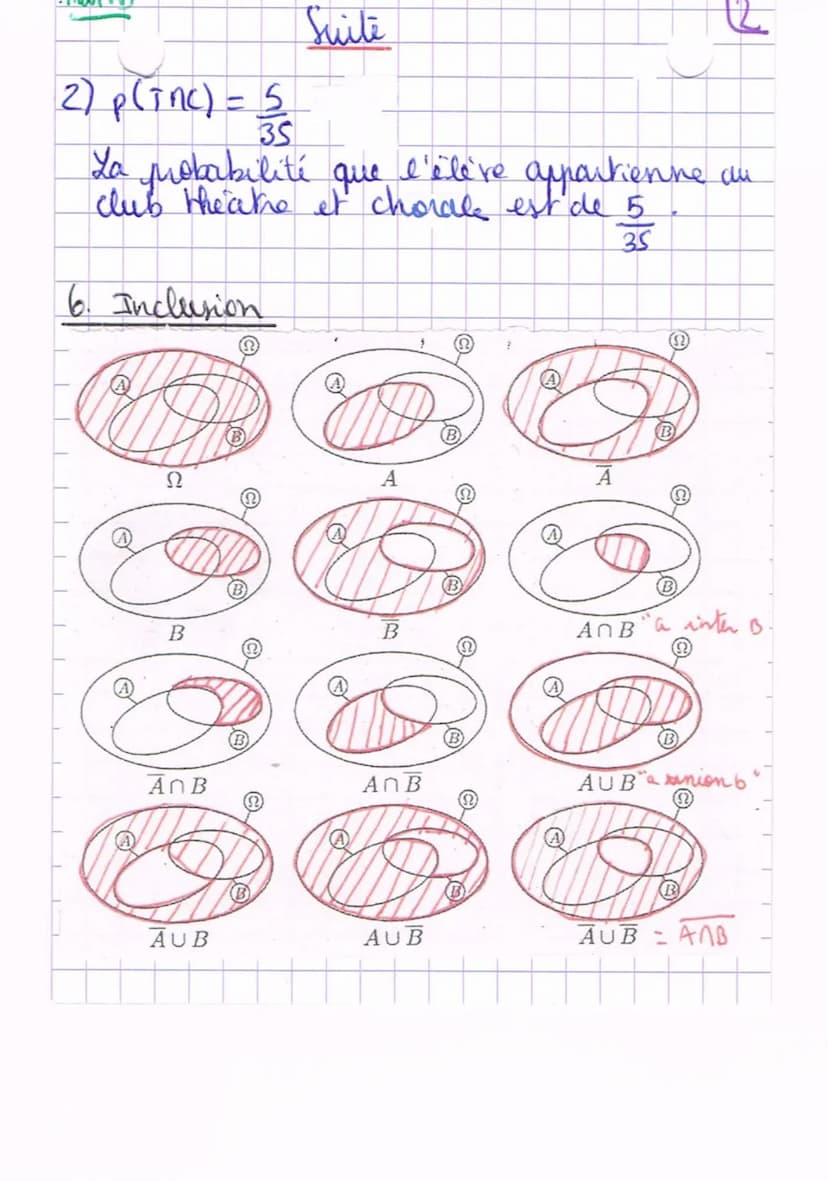 Suite
2
2) p(TnC) = 5/35
La probabilité que l'élève appartienne au
club théâtre et chorale est de 5/35.
6. Inclusion
Ω Ω Ω
A A A
B B B
Ω A A̅
Ω Ω Ω
A A A
B B B
B B̅ A∩B "a inter B
Ω Ω Ω
A A A
B B B
A̅∩B A∩B̅ A∪B "a union b"
Ω Ω Ω
A A A
B B B
A̅∪B A∪B̅ A̅∪B̅ = A̅∩̅B̅